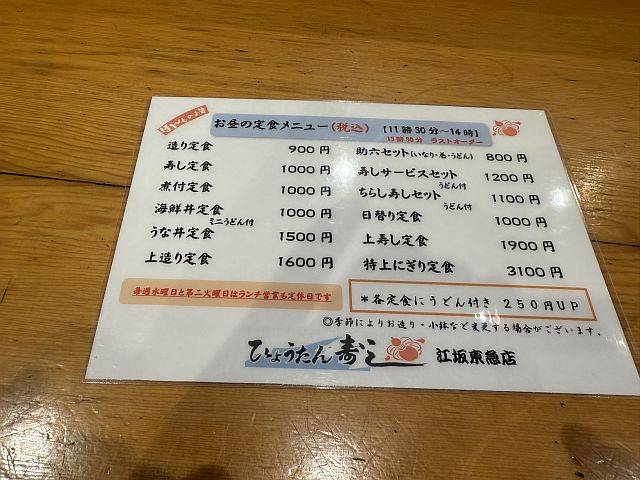 お昼の定食メニュー(税込)【11時30分～14時】
13時30分 ラストオーダー
造り定食 900円
寿し定食 1000円
煮付定食 1000円
海鮮丼定食 1000円
ミニうどん付
うな丼定食 1500円
上造り定食 1600円
助六セット(いなり・巻・うどん) 800円
寿しサービスセット 1200円
うどん付
ちらし寿しセット 1100円
うどん付
日替り定食 1000円
上寿し定食 1900円
特上にぎり定食 3100円
毎週水曜日と第二火曜日はランチ営業も定休日です
＊各定食にうどん付き 250円UP
◎季節によりお造り・小鉢など変更する場合がございます。
ひょうたん寿し 江坂東急店